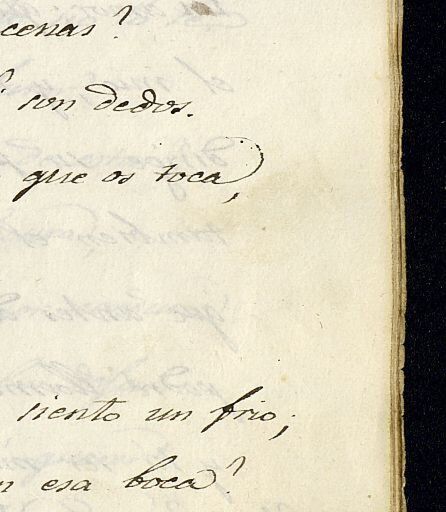 cenas?
son dedos.
que os toca,
siento un frio;
esa boca?